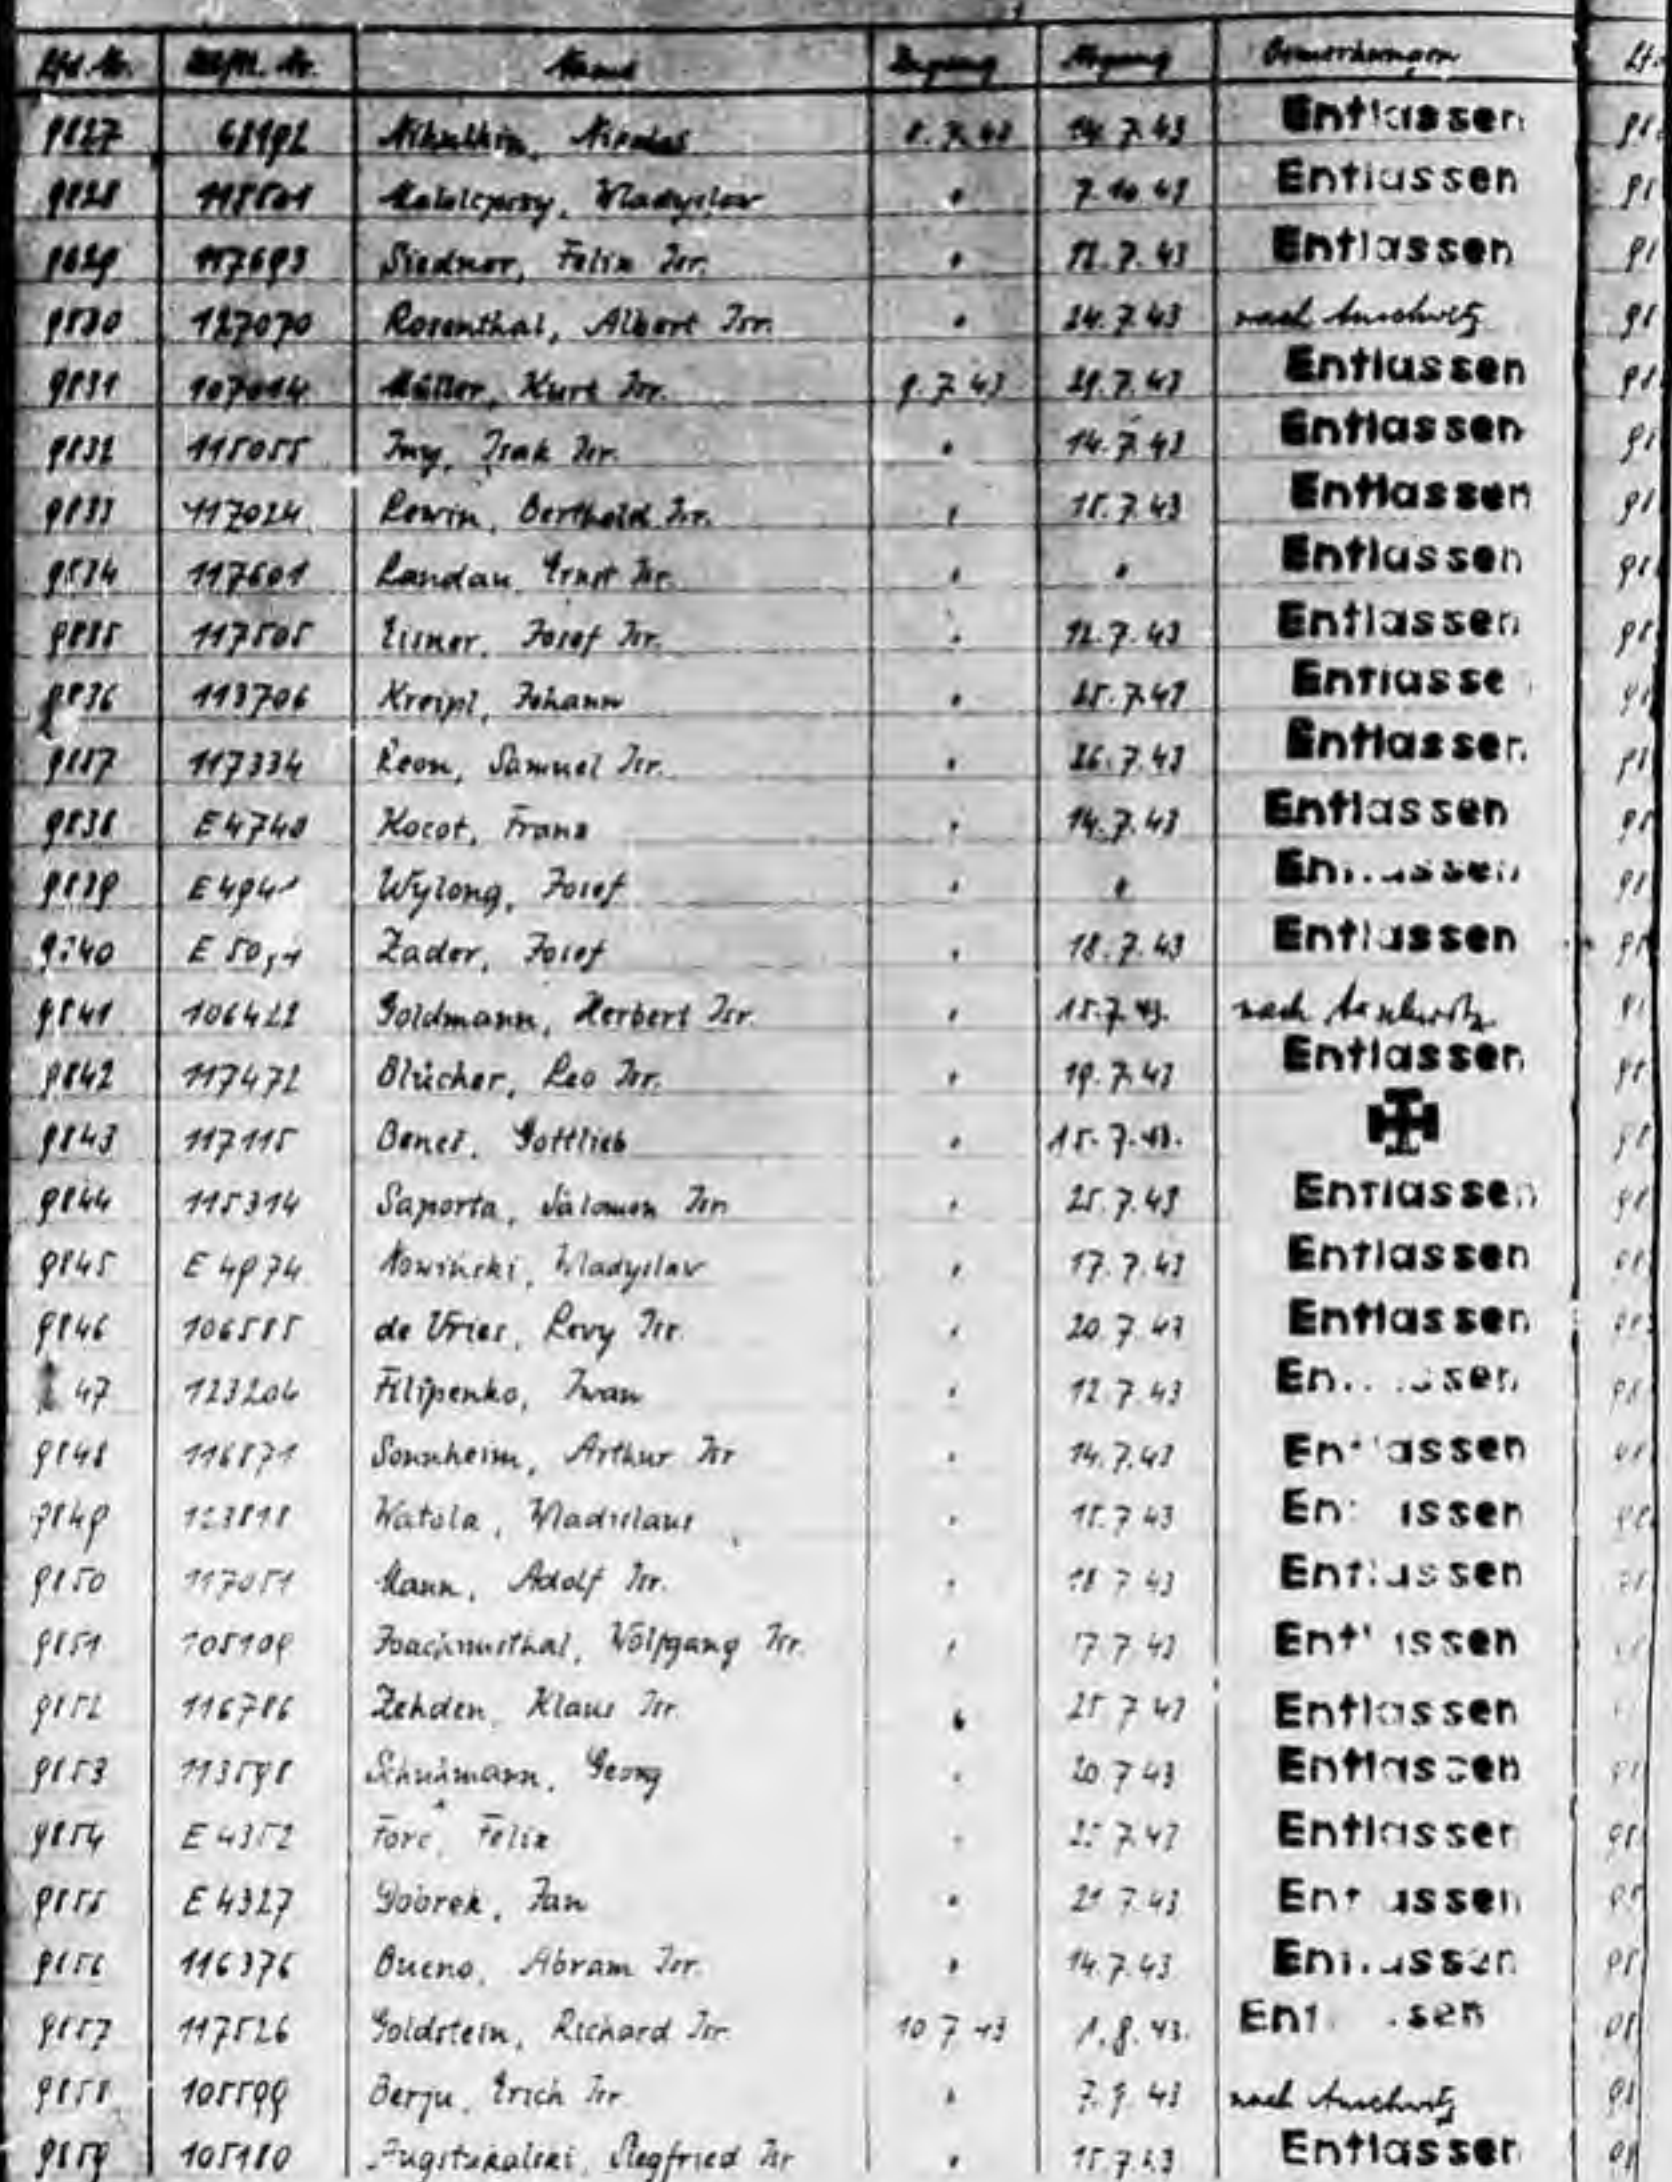 Lfd. Nr. Häftl. Nr. Name Zugang Abgang Bemerkungen
9827 68192 Nikolas 8.7.43 14.7.43 Entlassen
9828 118501 Wladyslaw " 7.10.43 Entlassen
9829 117693 Siedner, Felix Isr. " 12.7.43 Entlassen
9830 127070 Rosenthal, Albert Isr. " 24.7.43 nach Auschwitz
9831 107014 Müller, Kurt Isr. 9.7.43 29.7.43 Entlassen
9832 115055 Isak Isr. " 14.7.43 Entlassen
9833 117024 Lewin, Berthold Isr. " 15.7.43 Entlassen
9834 117601 Landau, Ernst Isr. " " Entlassen
9835 117505 Eisner, Josef Isr. " 12.7.43 Entlassen
9836 113706 Kreipl, Johann " 25.7.43 Entlasse
9837 117334 Leon, Samuel Isr. " 26.7.43 Entlassen
9838 E 4740 Kocot, Franz " 14.7.43 Entlassen
9839 Wylong, Josef " " Entlassen
9840 Zador, Josef " 18.7.43 Entlassen
9841 106422 Goldmann, Herbert Isr. " 15.7.43. nach Auschwitz
9842 117472 Blücher, Leo Isr. " 19.7.43 Entlassen
9843 117115 Gottlieb " 15.7.43.
9844 115314 Saporta, Salomon Isr. " 25.7.43 Entlassen
9845 E 4974 Nowinski, Wladyslaw " 17.7.43 Entlassen
9846 106585 de Vries, Levy Isr. " 20.7.43 Entlassen
47 123204 Filipenko, Iwan " 12.7.43 Entlassen
9848 116871 Sonnheim, Arthur Isr " 14.7.43 Entlassen
9849 123818 Watola, Wladislaus " 15.7.43 Entlassen
9850 117051 Mann, Adolf Isr. " 18.7.43 Entlassen
9851 105109 Joachimsthal, Wolfgang Isr. " 17.7.43 Entlassen
9852 116786 Zehden, Klaus Isr. " 25.7.43 Entlassen
9853 113598 Schuhmann, Georg " 20.7.43 Entlassen
9854 E 4352 Felix " Entlassen
9855 E 4327 Dobrek, Jan " 21.7.43 Entlassen
9856 116376 Bueno, Abram Isr. " 14.7.43 Entlassen
9857 117526 Goldstein, Richard Isr. 10.7.43 1.8.43. Entlassen
9858 105599 Berju, Erich Isr " 7.9.43 nach Auschwitz
9859 105180 Siegfried Isr " 15.7.43 Entlassen